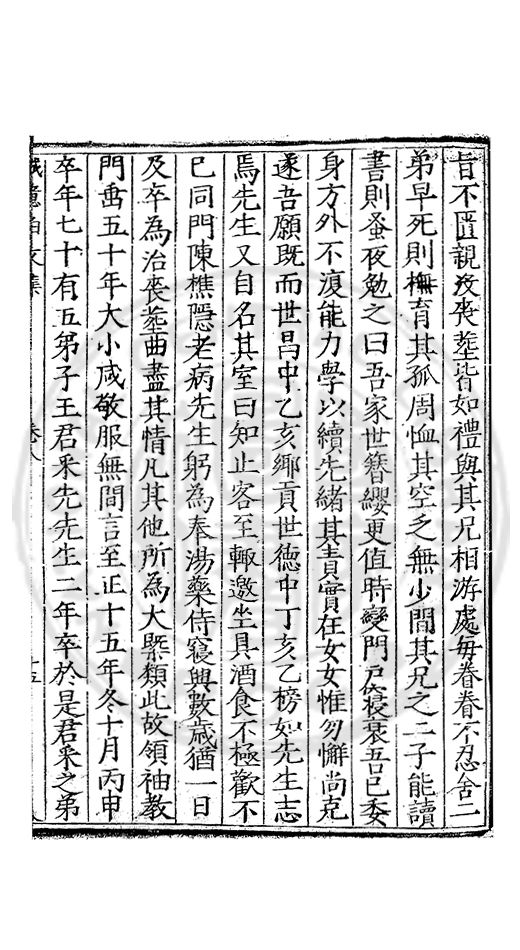 旨不匱親歿喪塟皆如禮與其兄相游處每眷眷不忍舍二
弟早死則撫育其孤周恤其空乏無少間其兄之二子能讀
書則蚤夜勉之曰吾家世簪纓更值時變門戶寖衰吾已委
身方外不復能力學以續先緒其責實在女女惟勿懈尚克
遂吾願既而世昌中乙亥鄉貢世德中丁亥乙榜如先生志
焉先生又自名其室曰知止客至輒邀坐具酒食不極歡不
已同門陳樵隱老病先生躬為奉湯藥侍寢興數歲猶一日
及卒為治喪塟曲盡其情凡其他所為大槩類此故領袖教
門甾五十年大小咸敬服無間言至正十五年冬十月丙申
卒年七十有五弟子王君釆先先生二年卒於是君釆之弟
卷八
十五